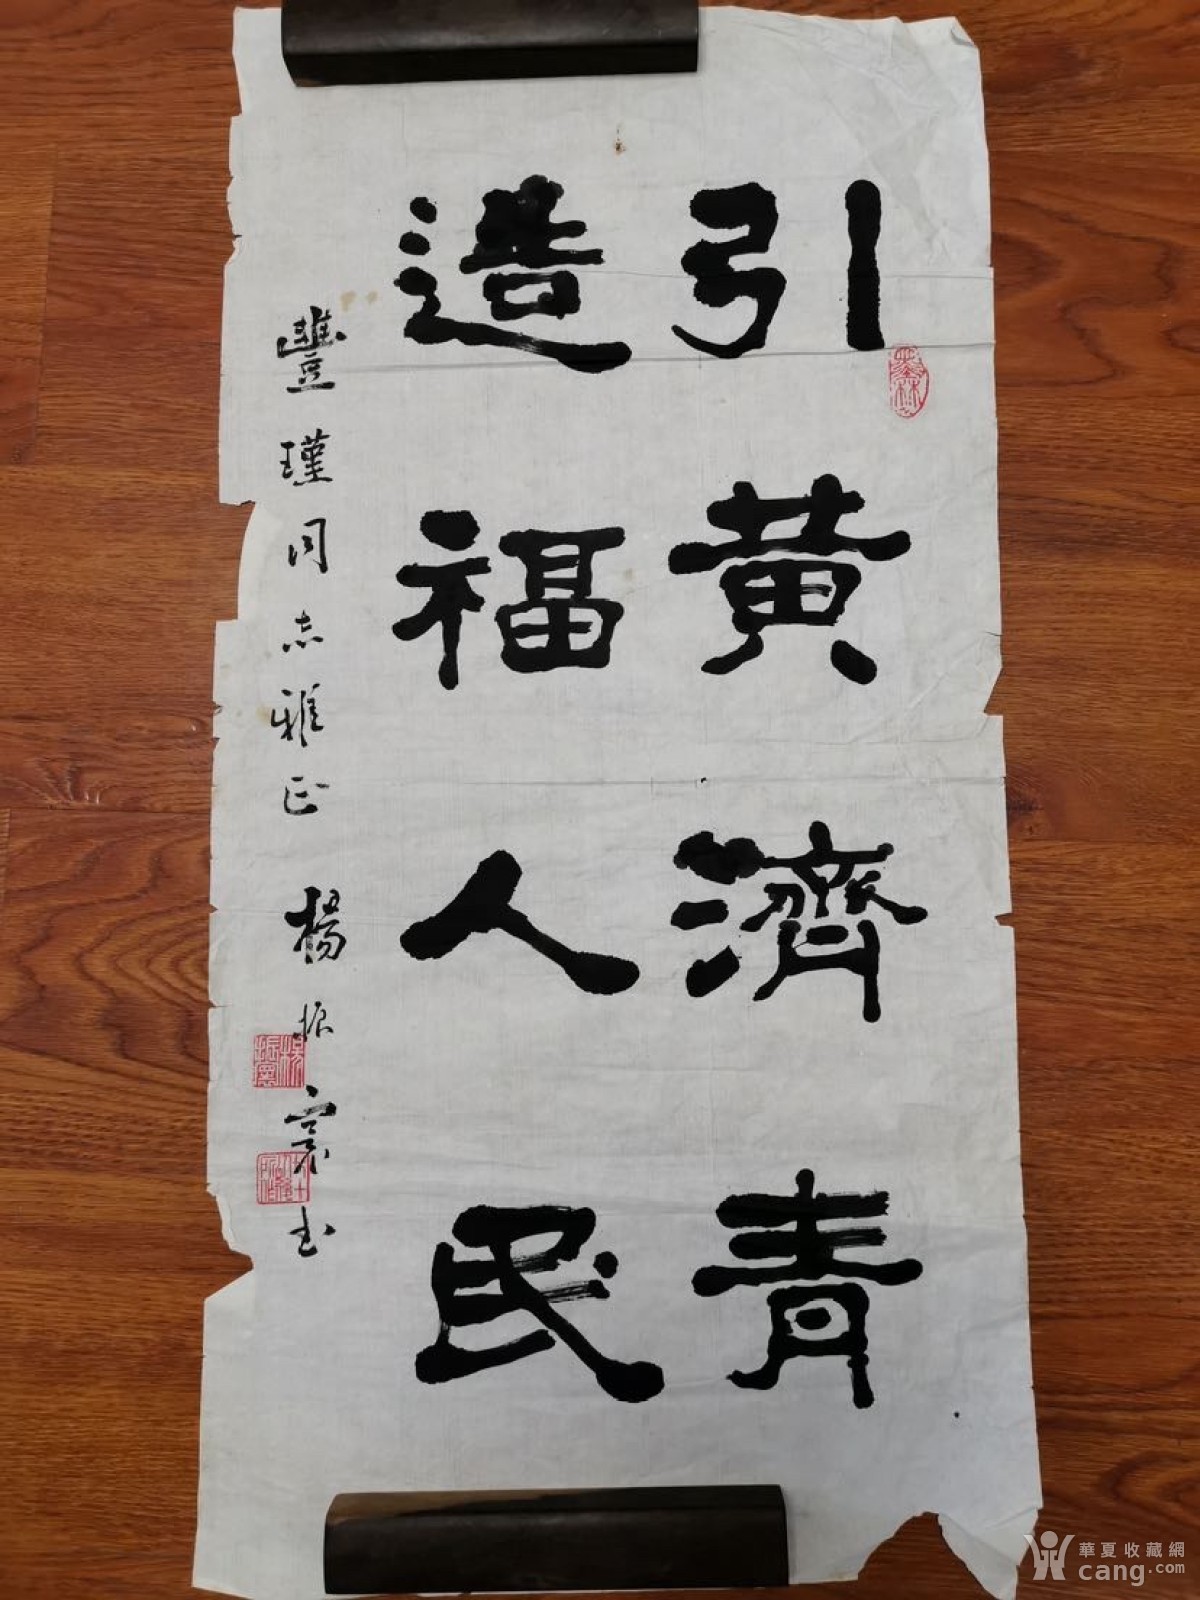 引黄濟青
造福人民
豐瑾同志雅正 楊振寰书
華夏收藏網
cang.com